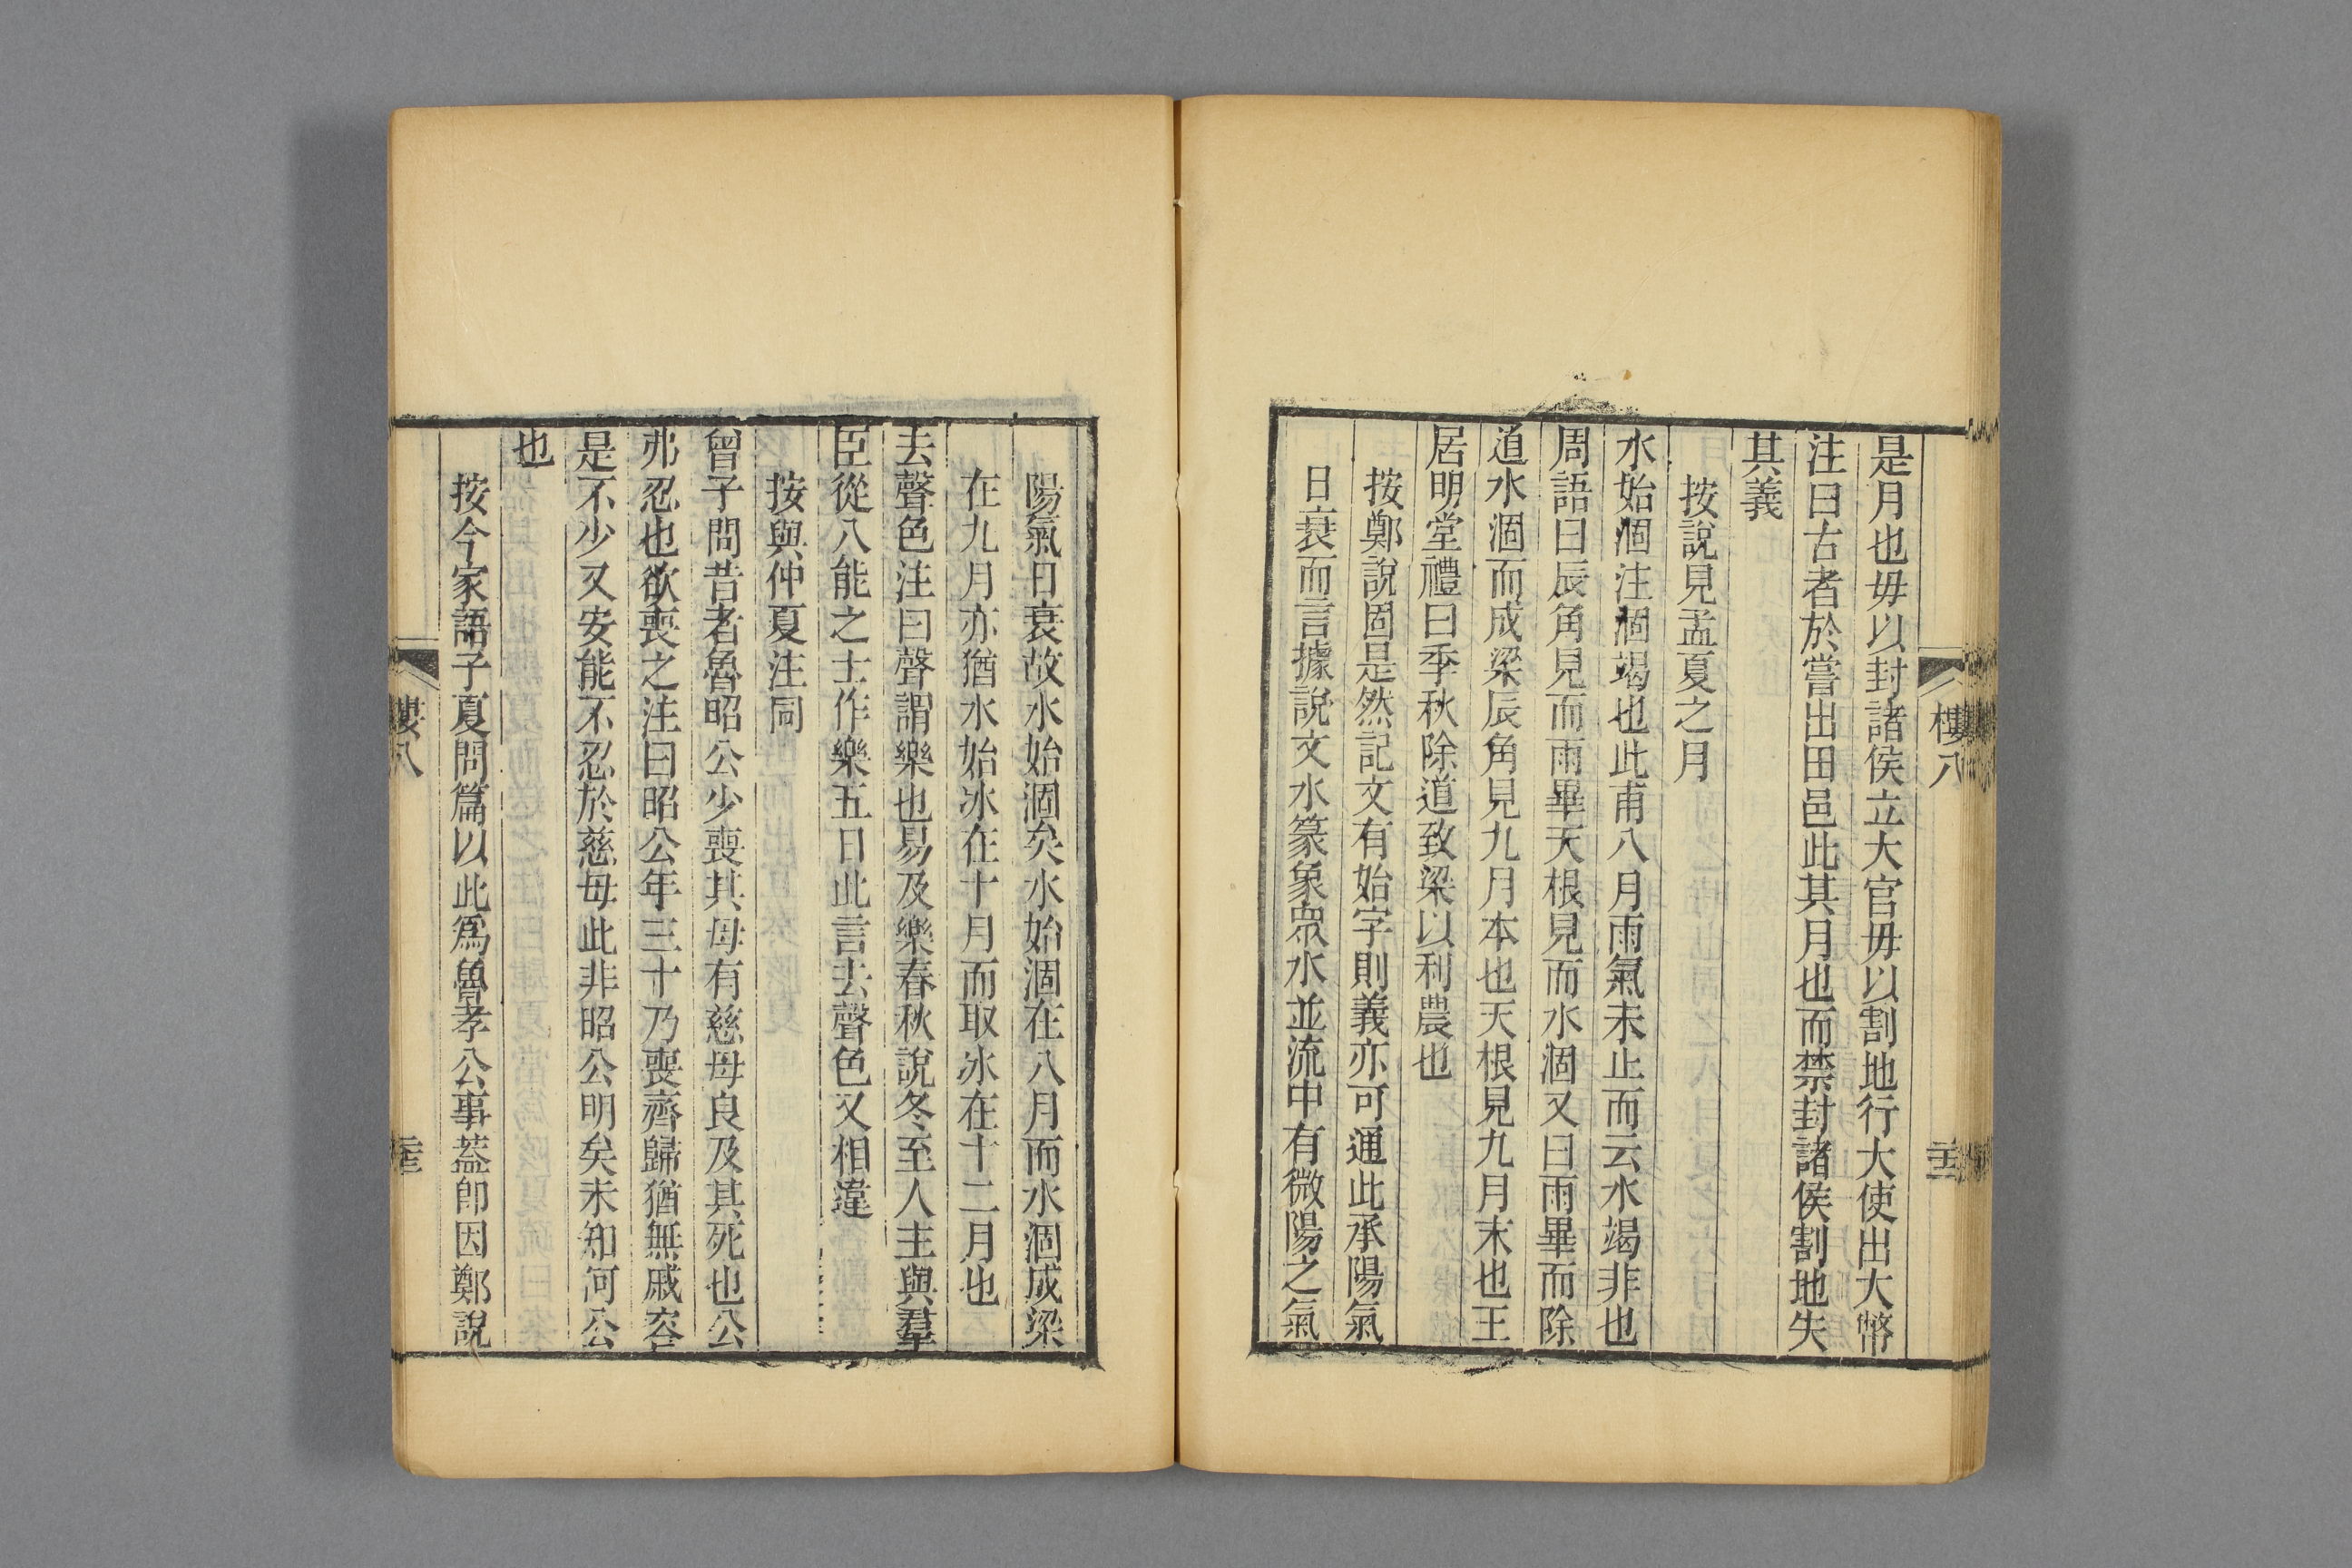 是月也毋以封諸侯立大官毋以割地行大使出大幣
注曰古者於嘗出田邑此其月也而禁封諸侯割地失
其義
按說見孟夏之月
水始涸注涸竭也此甫八月雨氣未止而云水竭非也
周語曰辰角見而雨畢天根見而水涸又曰雨畢而除
道水涸而成梁辰角見九月本也天根見九月末也王
居明堂禮曰季秋除道致梁以利農也
按鄭說固是然記文有始字則義亦可通此承陽氣
日衰而言據說文水篆象衆水並流中有微陽之氣
樓八
陽氣日衰故水始涸矣水始涸在八月而水涸成梁
在九月亦猶水始冰在十月而取冰在十二月也
去聲色注曰聲謂樂也易及樂春秋說冬至人主與羣
臣從八能之士作樂五日此言去聲色又相違
按與仲夏注同
曾子問昔者魯昭公少喪其母有慈母良及其死也公
弗忍也欲喪之注曰昭公年三十乃喪齊歸猶無戚容
是不少又安能不忍於慈母此非昭公明矣未知何公
也
按今家語子夏問篇以此爲魯孝公事蓋卽因鄭說
樓八